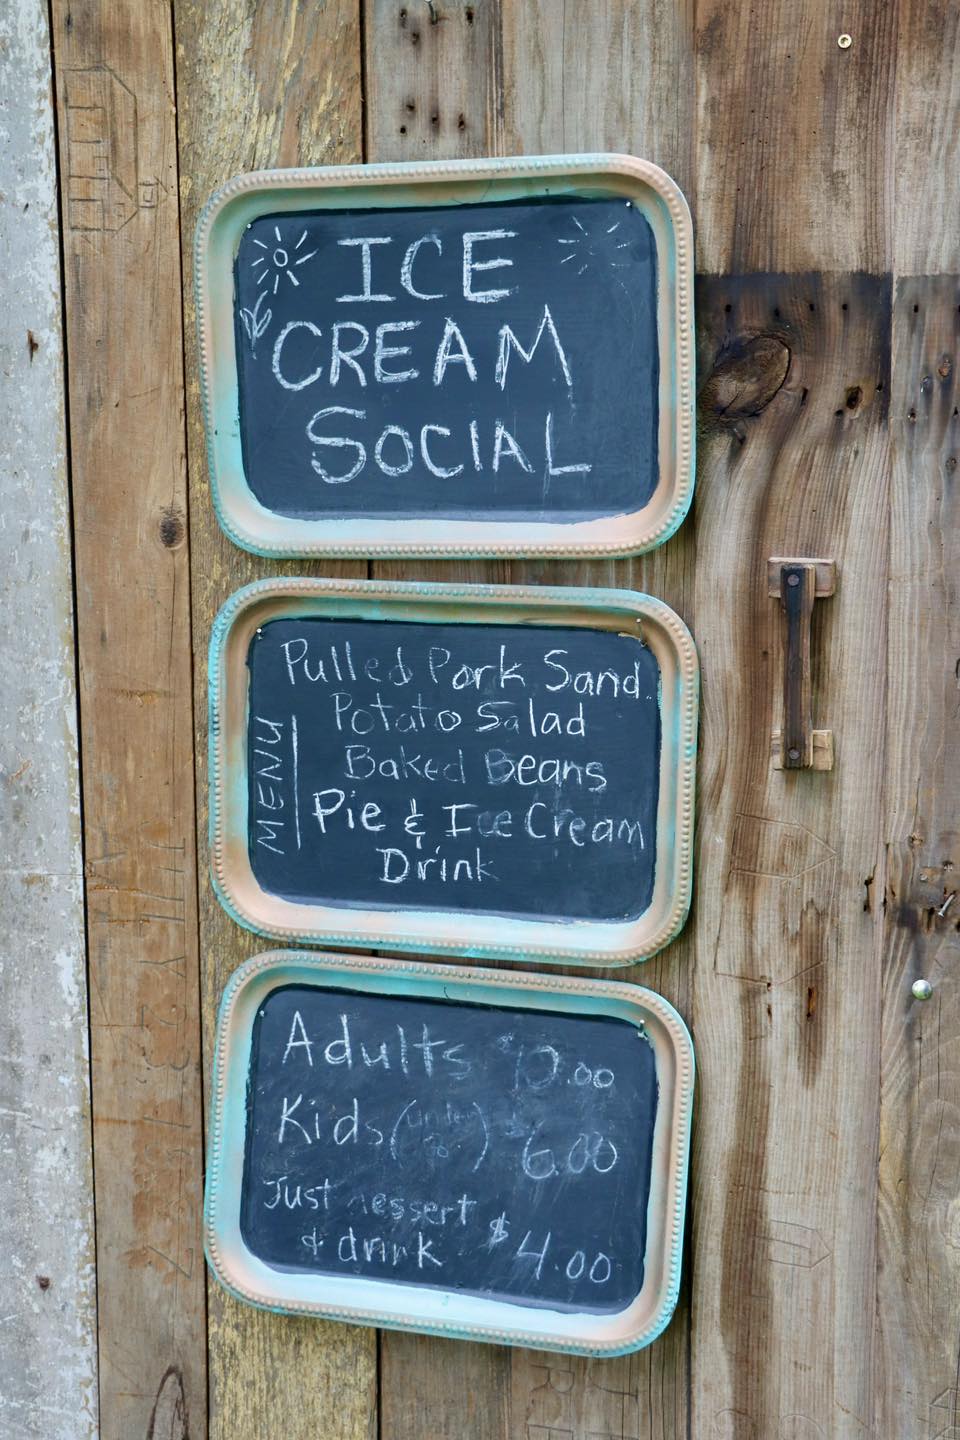 ICE
CREAM
SOCIAL
MENU
Pulled Pork Sand.
Potato Salad
Baked Beans
Pie & Ice Cream
Drink
Adults
Kids (under ) $6.00
Just Dessert
& drink $4.00